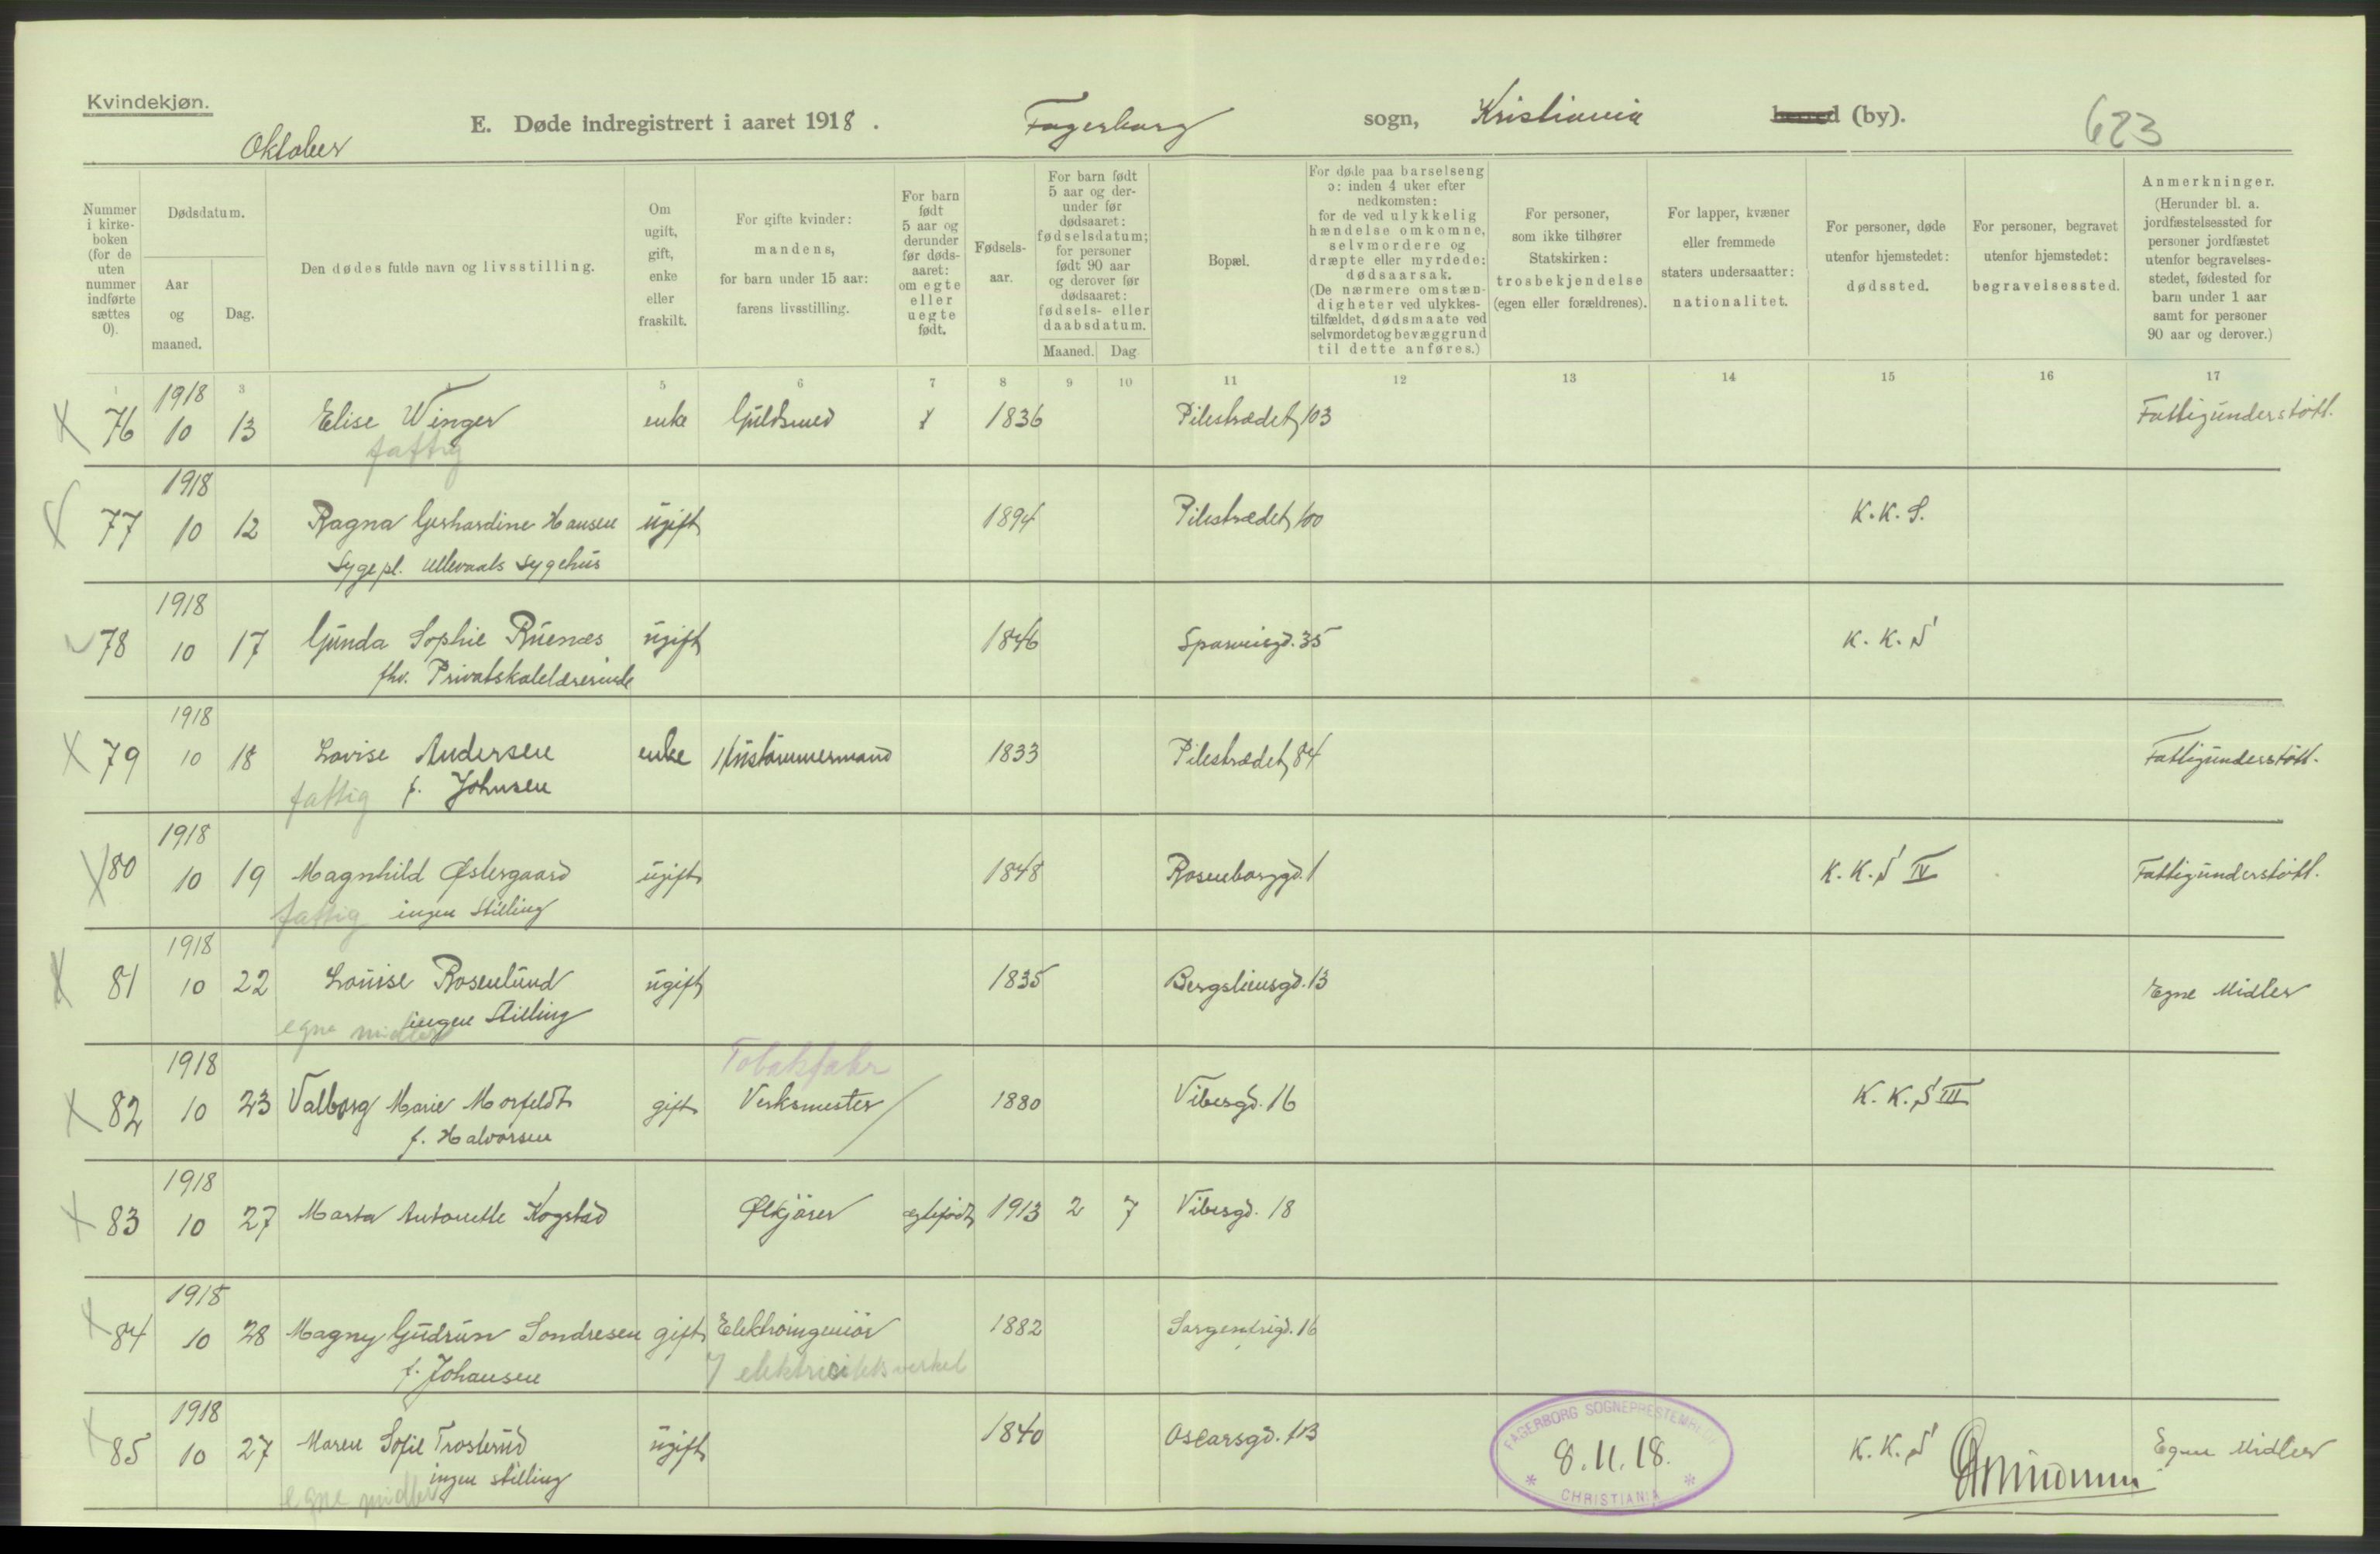 Kvindekjøn.
E. Døde indregistrert i aaret 1918.
Fagerborg sogn, Kristiania herred (by).
623
Oktober
Nummer i kirkeboken (for de uten nummer indførte sættes 0).
Dødsdatum.
Aar og maaned.
Dag.
Den dødes fulde navn og livsstilling.
Om ugift, gift, enke eller fraskilt.
For gifte kvinder: mandens, for barn under 15 aar: farens livsstilling.
For barn født 5 aar og derunder før dødsaaret: om egte eller uegte født.
Fødselsaar.
For barn født 5 aar og derunder før dødsaaret: fødselsdatum; for personer født 90 aar og derover før dødsaaret: fødsels- eller daabsdatum.
Maaned. Dag
Bopæl.
For døde paa barselseng ɔ: inden 4 uker efter nedkomsten: for de ved ulykkelig hændelse omkomne, selvmordere og dræpte eller myrdede: dødsaarsak. (De nærmere omstændigheter ved ulykkestilfældet, dødsmaate ved selvmordet og bevæggrund til dette anføres.)
For personer, som ikke tilhører Statskirken: trosbekjendelse (egen eller forældrenes).
For lapper, kvæner eller fremmede staters undersaatter: nationalitet.
For personer, døde utenfor hjemstedet: dødssted.
For personer, begravet utenfor hjemstedet: begravelsessted.
Anmerkninger. (Herunder bl. a. jordfæstelsessted for personer jordfæstet utenfor begravelsesstedet, fødested for barn under 1 aar samt for personer 90 aar og derover.)
1 3 4 5 6 7 8 9 10 11 12 13 14 15 16 17
1918
76 10 13 Elise Winger enke Guldsmed 1836 Pilestrædet 103 Fattigunderstött.
fattig
1918
77 10 12 Ragna Gerhardine Hansen ugift 1894 Pilestrædet 100 K. K. S.
Sygepl. Ullevaals Sygehus
1918
78 10 17 Gunda Sophie Ruenæs ugift 1846 Sporveisgd. 35 K. K. S
fhv. Privatskolelærerinde
1918
79 10 18 Lovise Andersen enke Hustömmermand 1833 Pilestrædet 84 Fattigunderstött.
fattig f. Johnsen
1918
80 10 19 Magnhild Østergaard ugift 1848 Rosenborggd. 1 K. K. S IV Fattigunderstött.
fattig ingen Stilling
1918
81 10 22 Louise Rosenlund ugift 1835 Bergsliensgd. 13 Egne Midler
egne midler ingen Stilling
1918 Tobakfabr
82 10 23 Valborg Marie Morfeldt gift Verksmester 1880 Vibesgd. 16 K. K. S III
f. Halvorsen
1918
83 10 27 Marta Antonette Kogstad Ølkjörer egtefödt 1913 2 7 Vibesgd. 18
1918
84 10 28 Magny Gudrun Sondresen gift Elektroingeniör 1882 Sorgenfrigd. 16
f. Johansen elektricitetsverket
1918
85 10 27 Maren Sofie Trosterud ugift 1840 Oscarsgd. K. K. S Egne Midler
egne midler ingen stilling
FAGERBORG SOGNEPRESTEMBEDE
8.11.18.
CHRISTIANIA